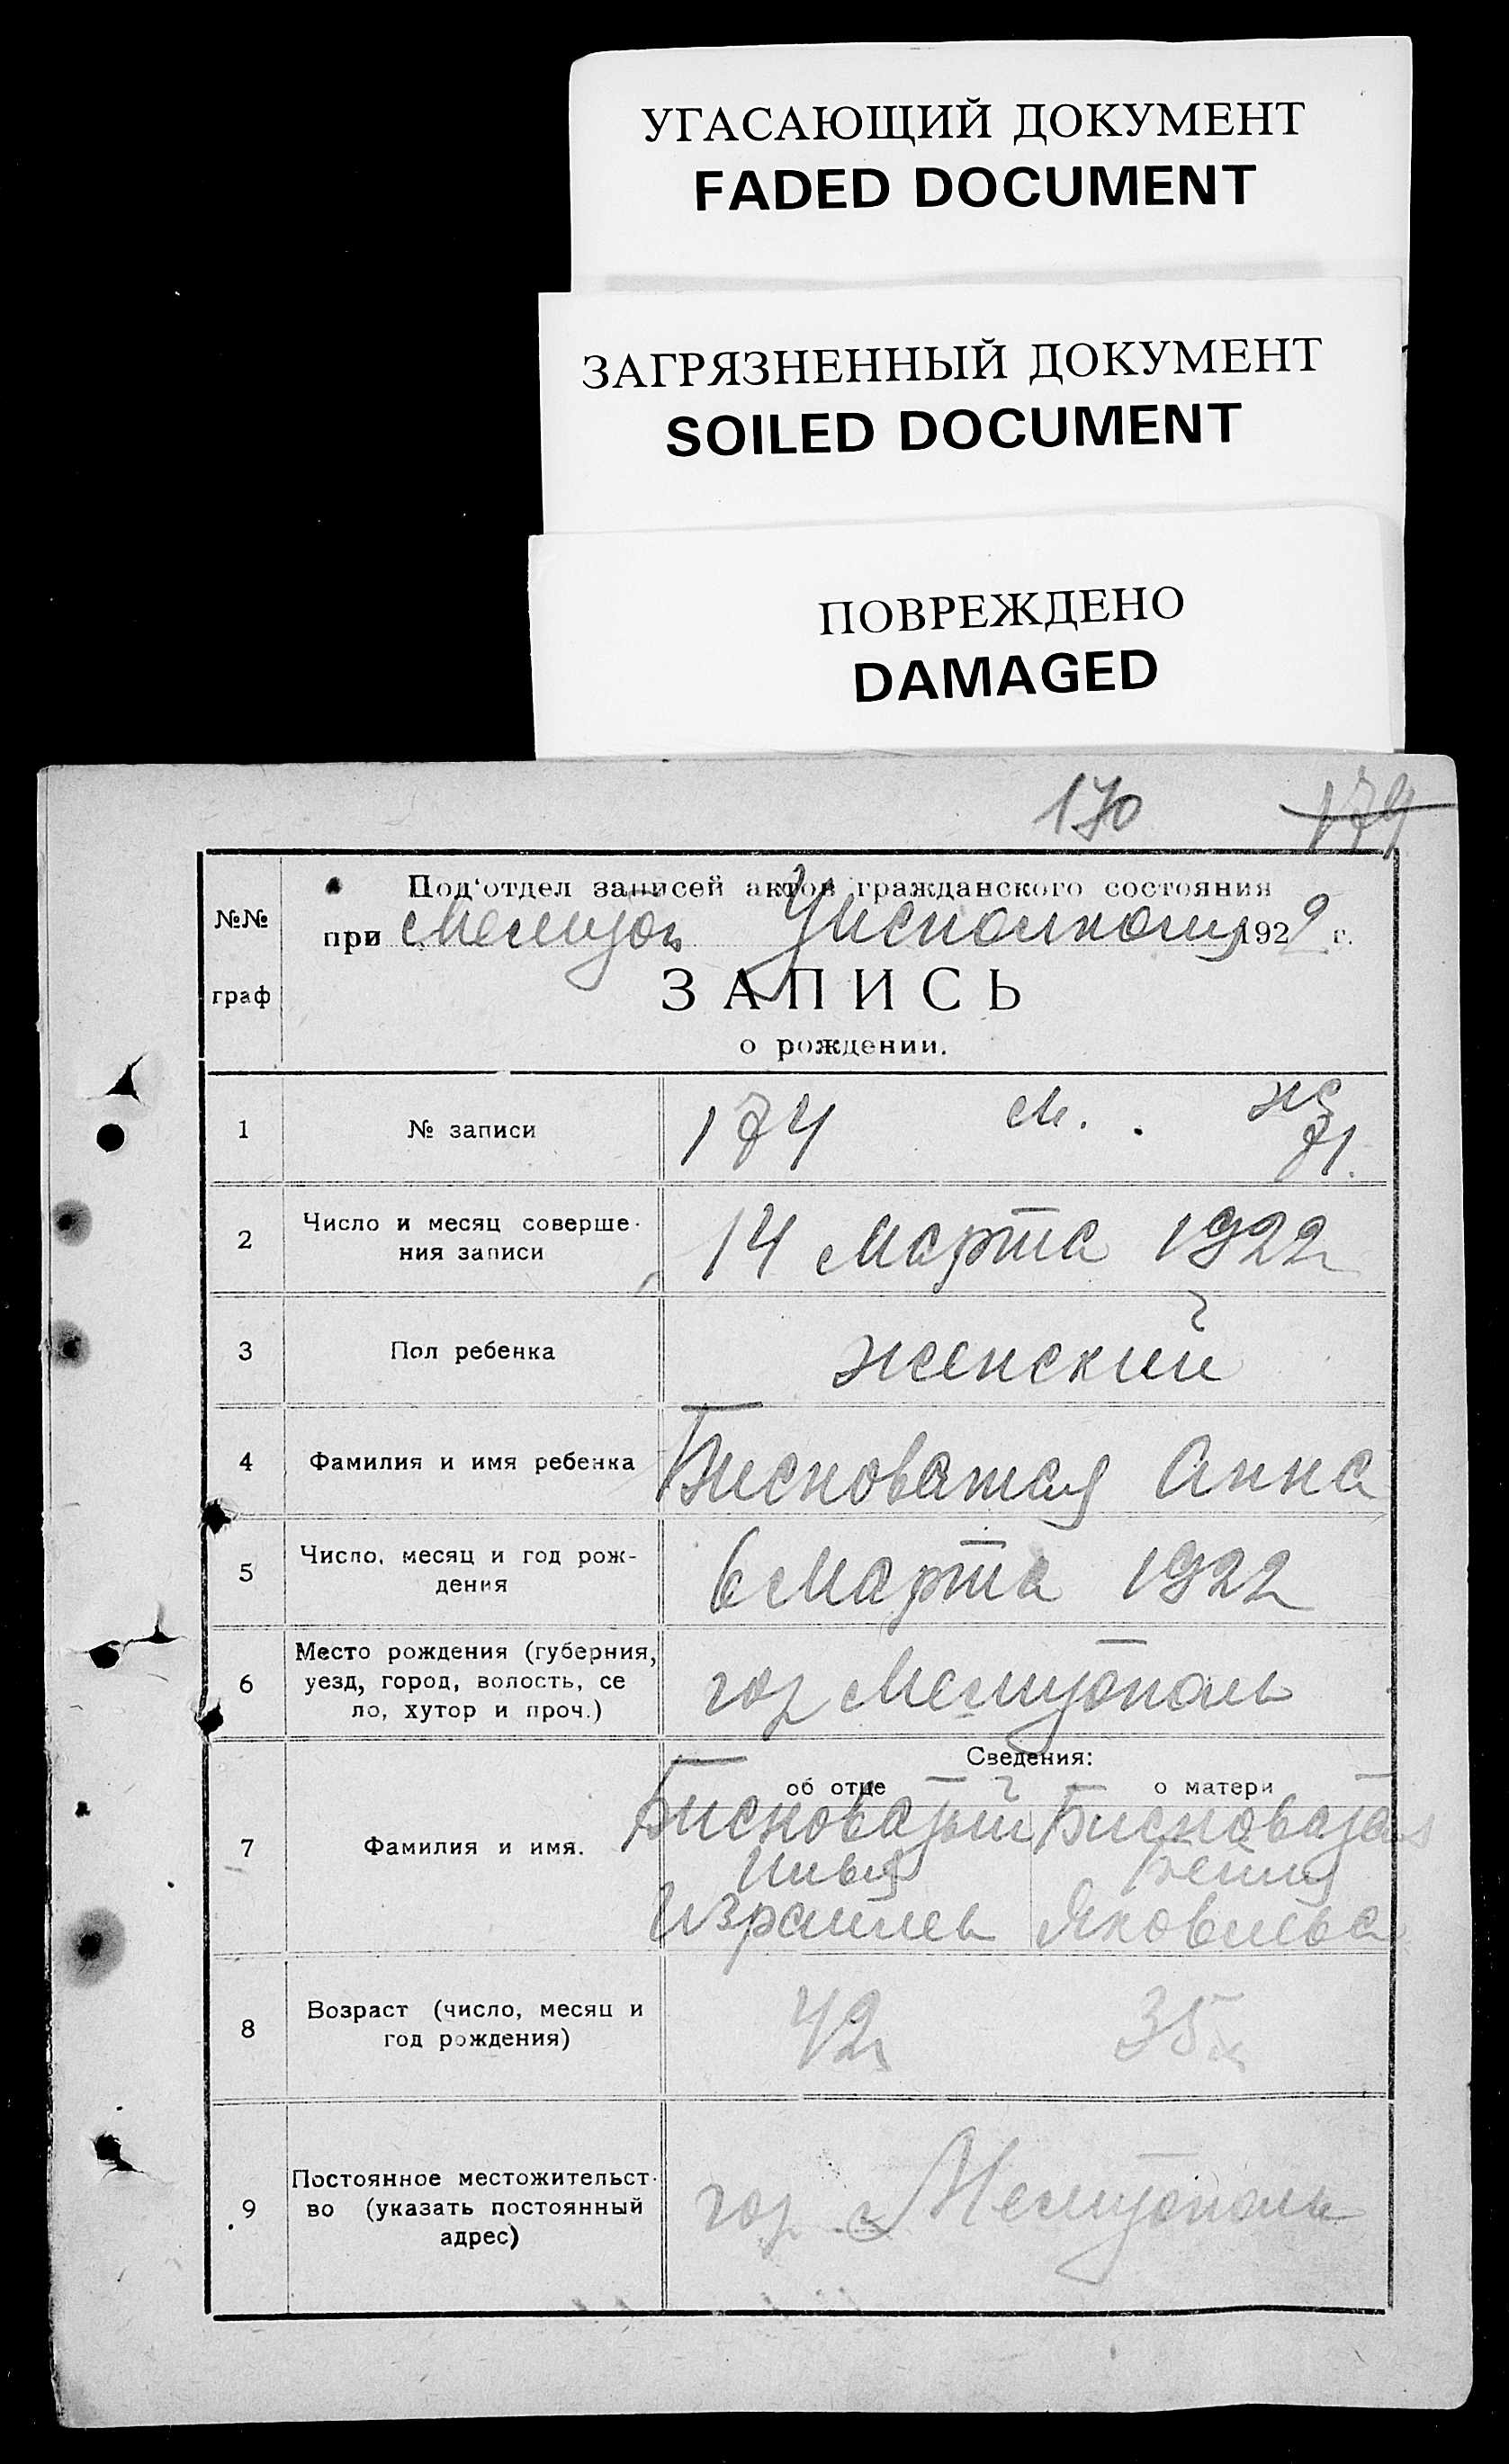 УГАСАЮЩИЙ ДОКУМЕНТ
FADED DOCUMENT
ЗАГРЯЗНЕННЫЙ ДОКУМЕНТ
SOILED DOCUMENT
ПОВРЕЖДЕНО
DAMAGED
170 174
№№ граф
Под'отдел записей актов гражданского состояния
при Мелитоп Уисполкому 1922 г.
ЗАПИСЬ
о рождении.
1 № записи 174 м. . ж 71.
2 Число и месяц соверше-
ния записи 14 Марта 1922
3 Пол ребенка женский
4 Фамилия и имя ребенка Бисноватая Анна
5 Число, месяц и год рож-
дения 6 Марта 1922
6 Место рождения (губерния,
уезд, город, волость, се
ло, хутор и проч.) гор Мелитополь
Сведения:
об отце о матери
7 Фамилия и имя. Бисноватый Бисноватая
Илья
Израилев Яковлева
8 Возраст (число, месяц и
год рождения) 42 35
9 Постоянное местожительст-
во (указать постоянный
адрес) гор Мелитополь